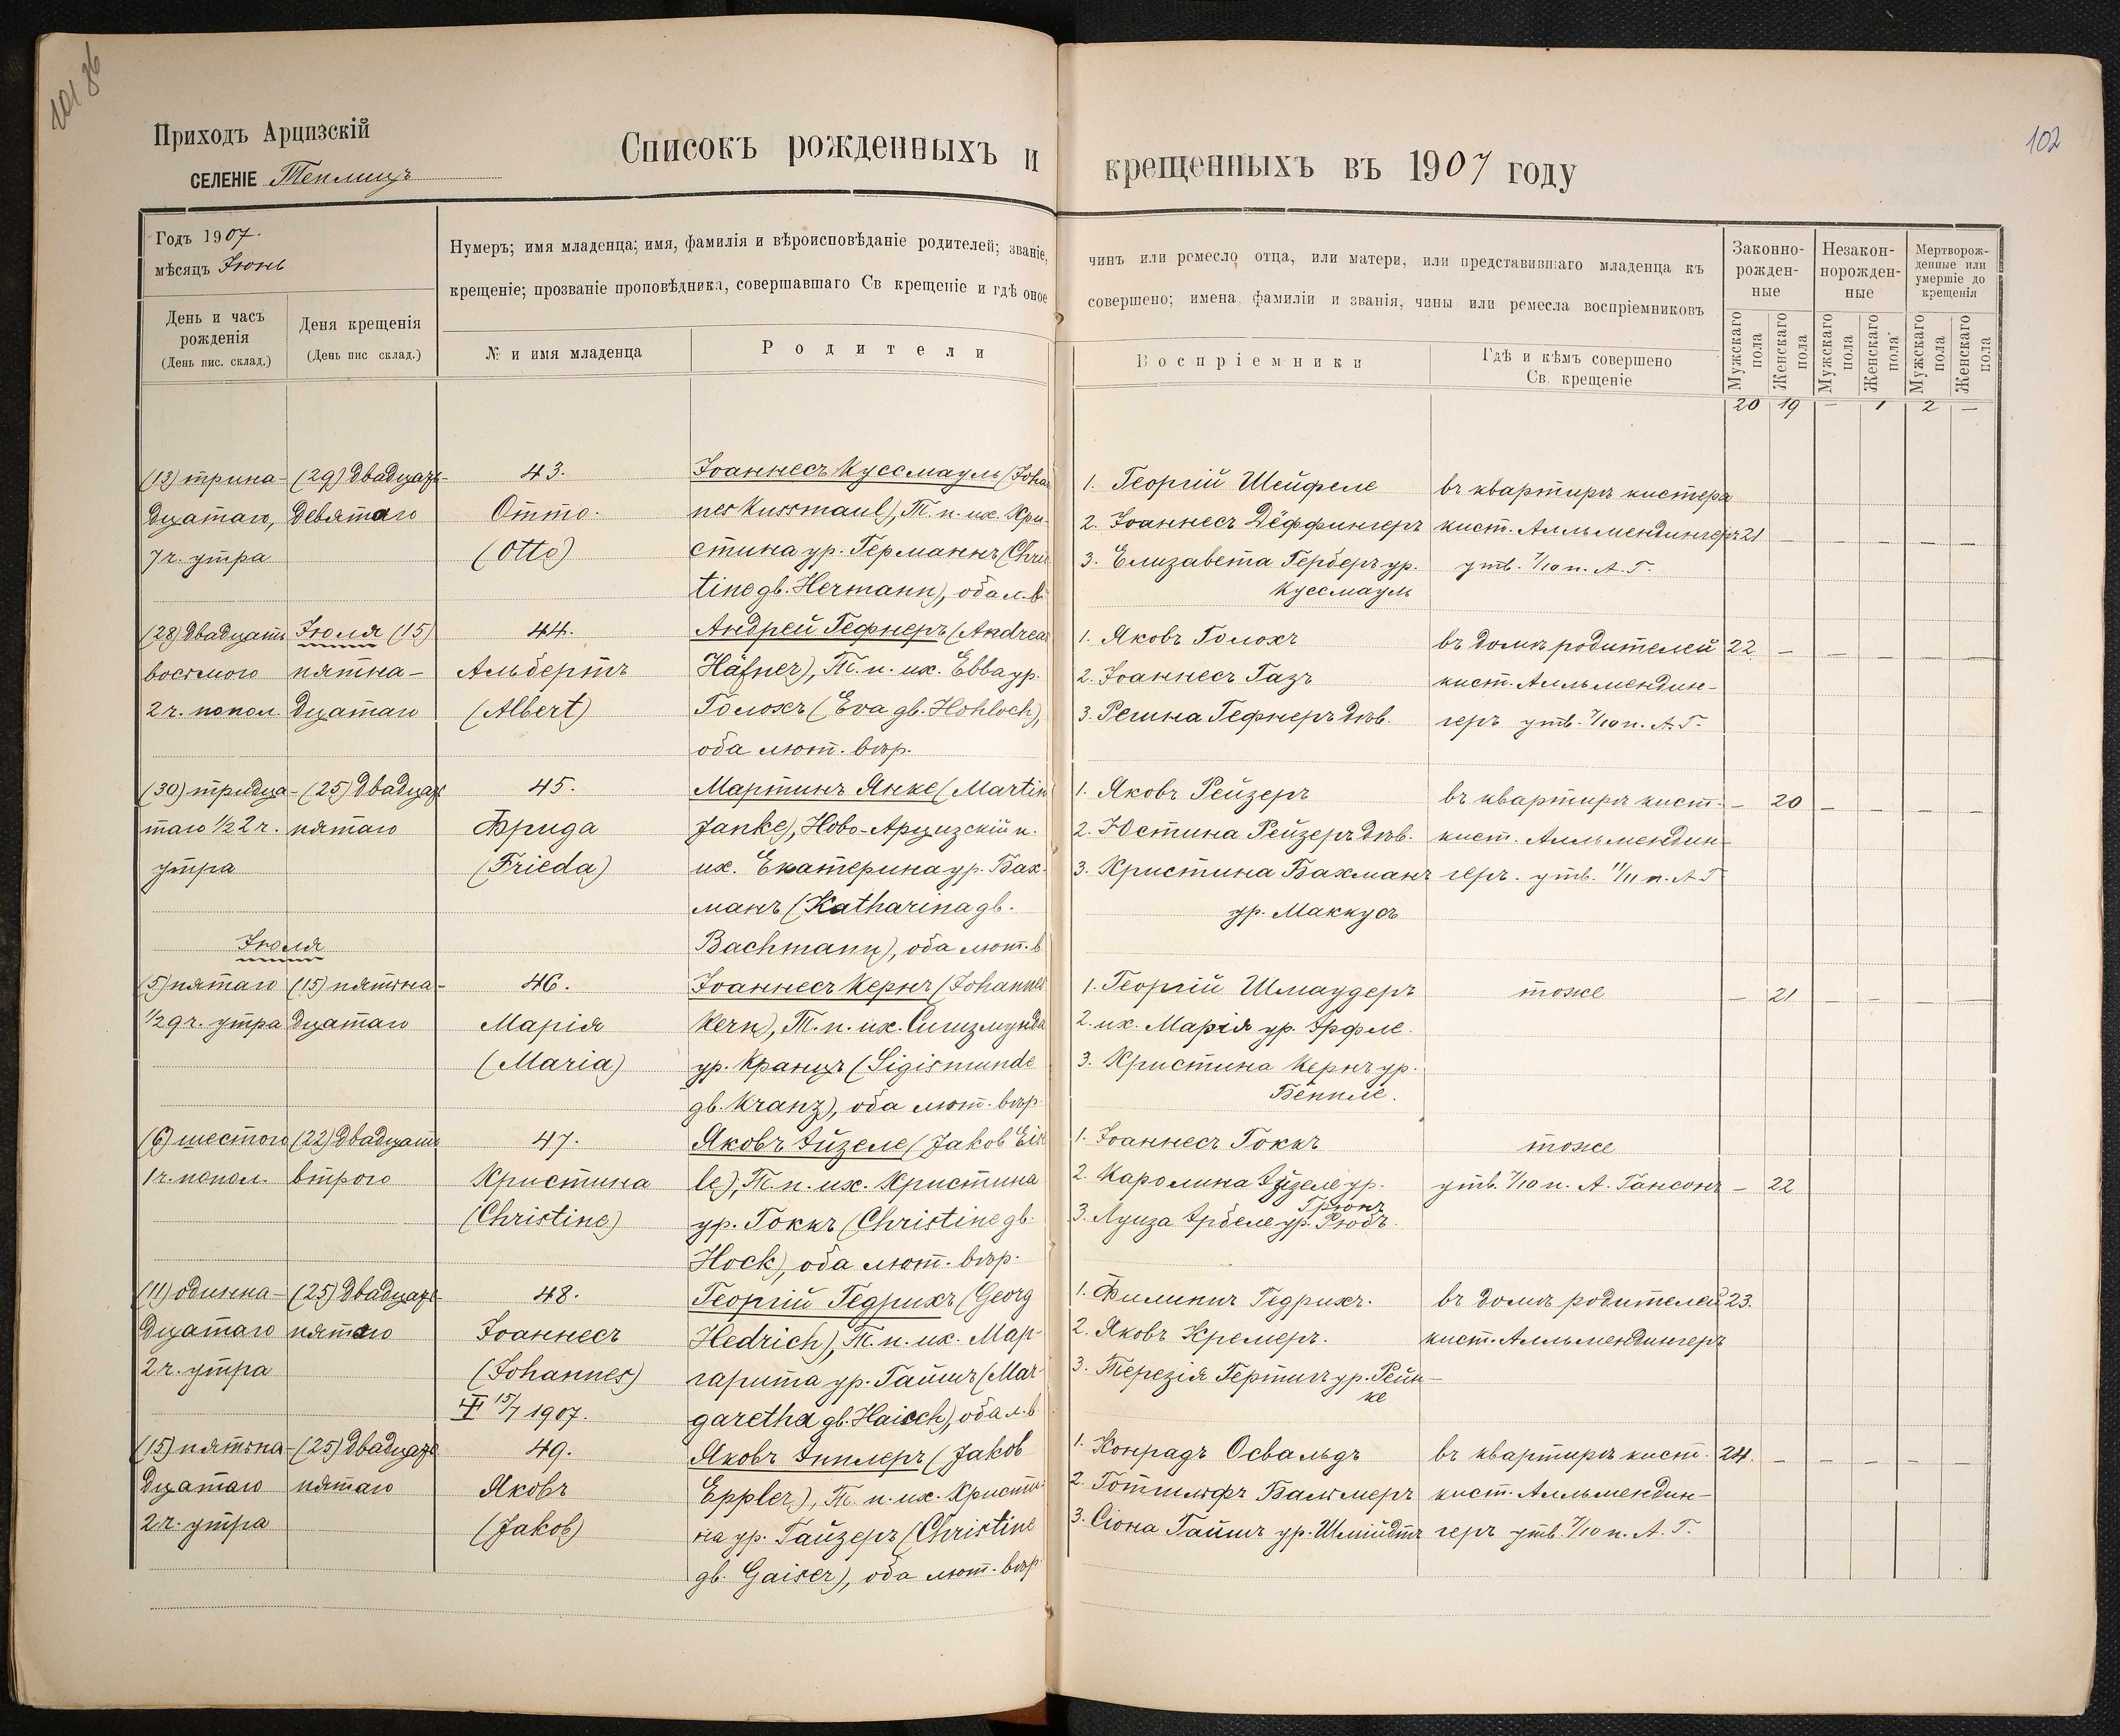 101 об
102
Приходъ Арцизскій
СЕЛЕНІЕ Теплицъ
Списокъ рожденныхъ и крещенныхъ въ 1907 году
Годъ 1907.
мѣсяцъ Іюнь
День и часъ
рожденія
(День пис. склад.)
Деня крещенія
(День пис склад.)
Нумеръ; имя младенца; имя, фамилія и вѣроисповѣданіе родителей; званіе,
крещеніе; прозваніе проповѣдника, совершавшаго Св крещеніе и гдѣ оное
№ и имя младенца
Родители
чинъ или ремесло отца, или матери, или представившаго младенца къ
совершено; имена фамиліи и званія, чины или ремесла воспріемниковъ
Воспріемники
Гдѣ и кѣмъ совершено
Св. крещеніе
Законно-
рожден-
ные
Незакон-
норожден-
ные
Мертворож-
денные или
умершіе до
крещенія
Мужскаго
пола
Женскаго
пола
Мужскаго
пола
Женскаго
пола
Мужскаго
пола
Женскаго
пола
20 19 — 1 2 —
(13) трина-
дцатаго,
7 ч. утра
(29) двадцать
девятаго
43.
Отто.
(Otto)
Іоаннесъ Куссмауль (Joha
nes Kussmaul), Т. п. их. Кри-
стина ур. Германнъ (Chris
tine gb. Hermann), оба л. в
1. Георгій Шейфеле
2. Іоаннесъ Дёффингеръ
3. Елизавета Герберъ ур.
Куссмауль
въ квартирѣ кистера
кист. Алльмендингеръ
утв. 7/10 п. А. Г.
21 — — — — —
(28) двадцать
восьмого
2 ч. попол.
Іюля (15)
пятна-
дцатаго
44.
Альбертъ
(Albert)
Андрей Гефнеръ (Andreas
Häfner), Т. п. их. Евва ур.
Голохъ (Eva gb. Hohloch),
оба лют. вѣр.
1. Яковъ Голохъ
2. Іоаннесъ Газъ
3. Регина Гефнеръ дѣв.
въ домѣ родителей
кист. Алльмендин-
геръ утв. 7/10 п. А. Г.
22 — — — — —
(30) тридца-
таго 1/2 2 ч.
утра
(25) двадцать
пятаго
45.
Фрида
(Frieda)
Мартинъ Янке (Martin
Janke), Ново-Арцизскій п.
их. Екатерина ур. Бах-
манъ (Katharina gb.
Bachmann), оба лют. в
1. Яковъ Рейзеръ
2. Юстина Рейзеръ дѣв.
3. Христина Бахманъ
ур. Маккусъ
въ квартирѣ кист.
кист. Алльмендин-
геръ. утв. 11/11 п. А. Г
— 20 — — — —
Іюля
(5) пятаго
1/2 9 ч. утра
(15) пятна-
дцатаго
46.
Марія
(Maria)
Іоаннесъ Кернъ (Johannes
Kern), Т. п. их. Сигизмунда
ур. Кранцъ (Sigismunde
gb. Kranz), оба лют. вѣр.
1. Георгій Шмаудеръ
2. их. Марія ур. Эрфле.
3. Христина Кернъ ур.
Бёппле.
тоже
— 21 — — — —
(6) шестого
1 ч. попол.
(22) двадцать
втрого
47.
Христина
(Christine)
Яковъ Эйзеле (Jakob Eise
le), Т. п. их. Христина
ур. Гоккъ (Christine gb.
Hock), оба лют. вѣр.
1. Іоаннесъ Гоккъ
2. Каролина Эйзеле ур.
Грюнъ
3. Луиза Эрбеле ур. Рюбъ.
тоже
утв. 7/10 п. А. Гансонъ
— 22
(11) одинна-
дцатаго
2 ч. утра
(25) двадцать
пятаго
48.
Іоаннесъ
(Johannes)
15/7 1907.
Георгій Гедрихъ (Georg
Hedrich), Т. п. их. Мар-
гарита ур. Гаишъ (Mar-
garetha gb. Haisch), оба л. в
1. Филиппъ Гедрихъ.
2. Яковъ Кремеръ.
3. Терезія Гертигъ ур. Рейн-
ке
въ домѣ родителей
кист. Алльмендингеръ
23.
(15) пятна-
дцатаго
2 ч. утра
(25) двадцать
пятаго
49.
Яковъ
(Jakob)
Яковъ Эпплеръ (Jakob
Eppler), Т. п. их. Христи-
на ур. Гайзеръ (Christine
gb. Gaiser), оба лют. вѣр.
1. Конрадъ Освальдъ
2. Готтлифъ Бальмеръ
3. Сіона Гаишъ ур. Шмидтъ
въ квартирѣ кист.
кист. Алльмендин-
геръ утв. 7/10 п. А. Г.
24. — — — — —